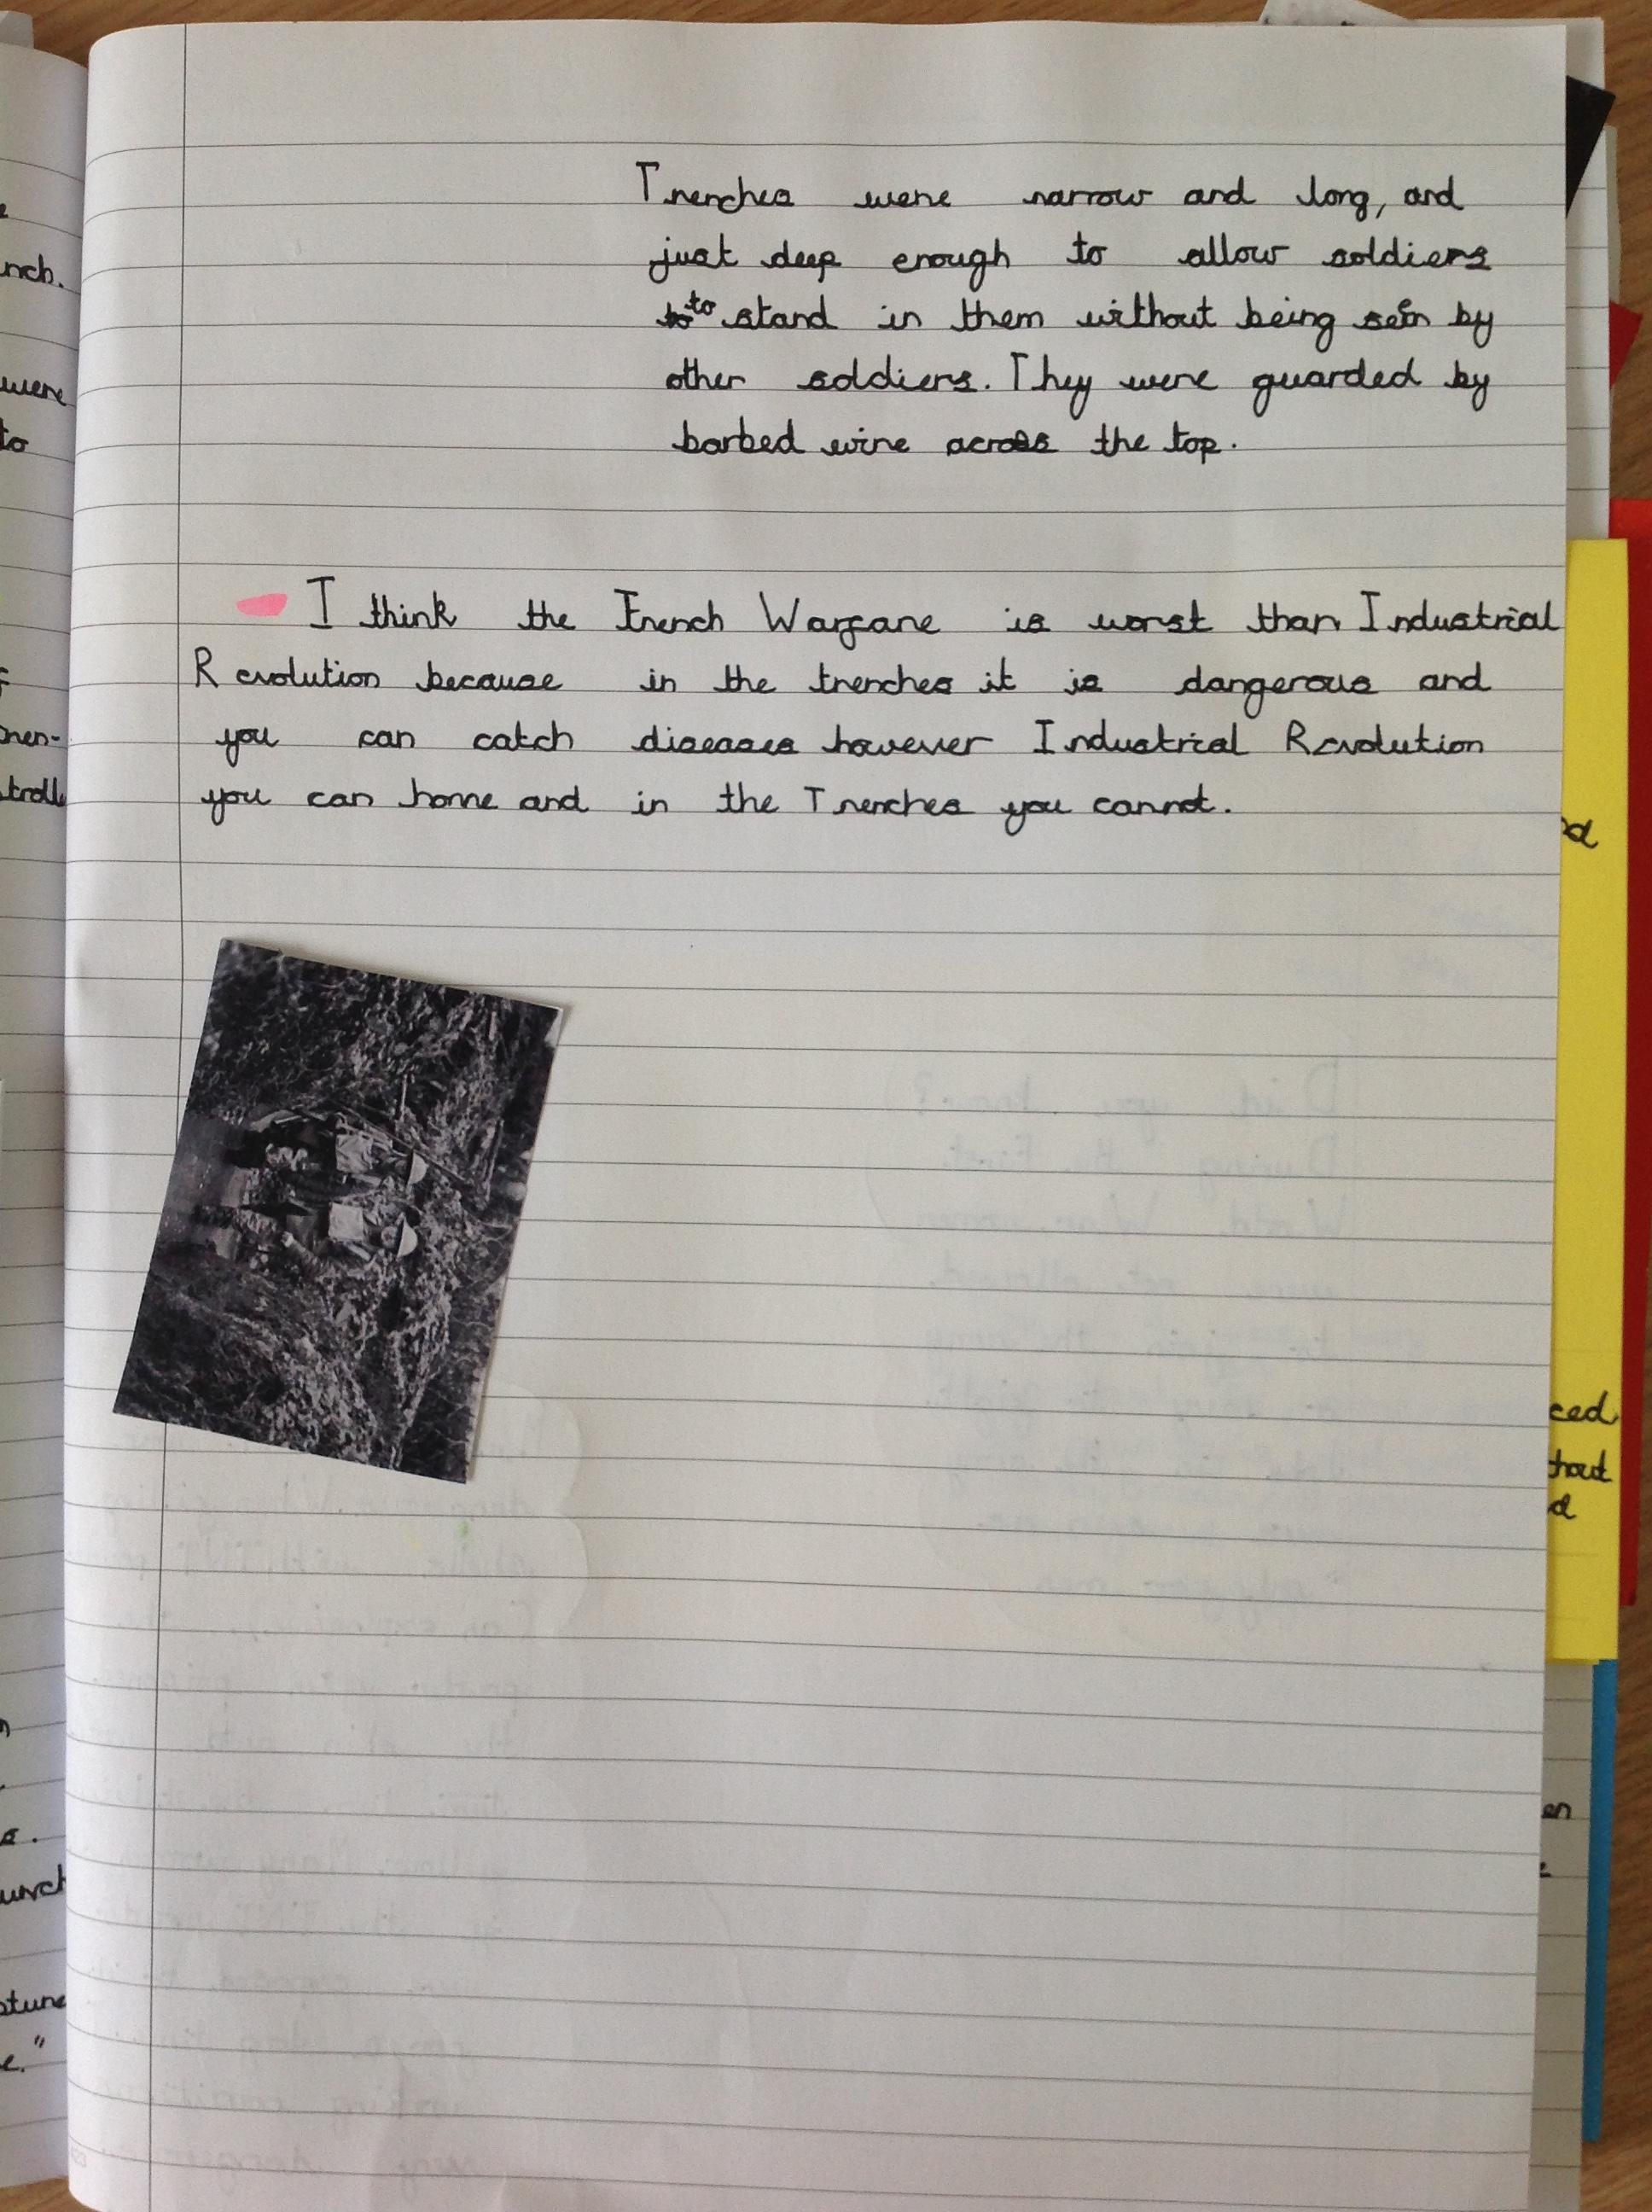 Trenches were narrow and long, and
just deep enough to allow soldiers
to stand in them without being seen by
other soldiers. They were guarded by
barbed wire across the top.
I think the Trench Warfare is worst than Industrial
Revolution because in the trenches it is dangerous and
you can catch diseases however Industrial Revolution
you can home and in the Trenches you cannot.
nch.
were
to